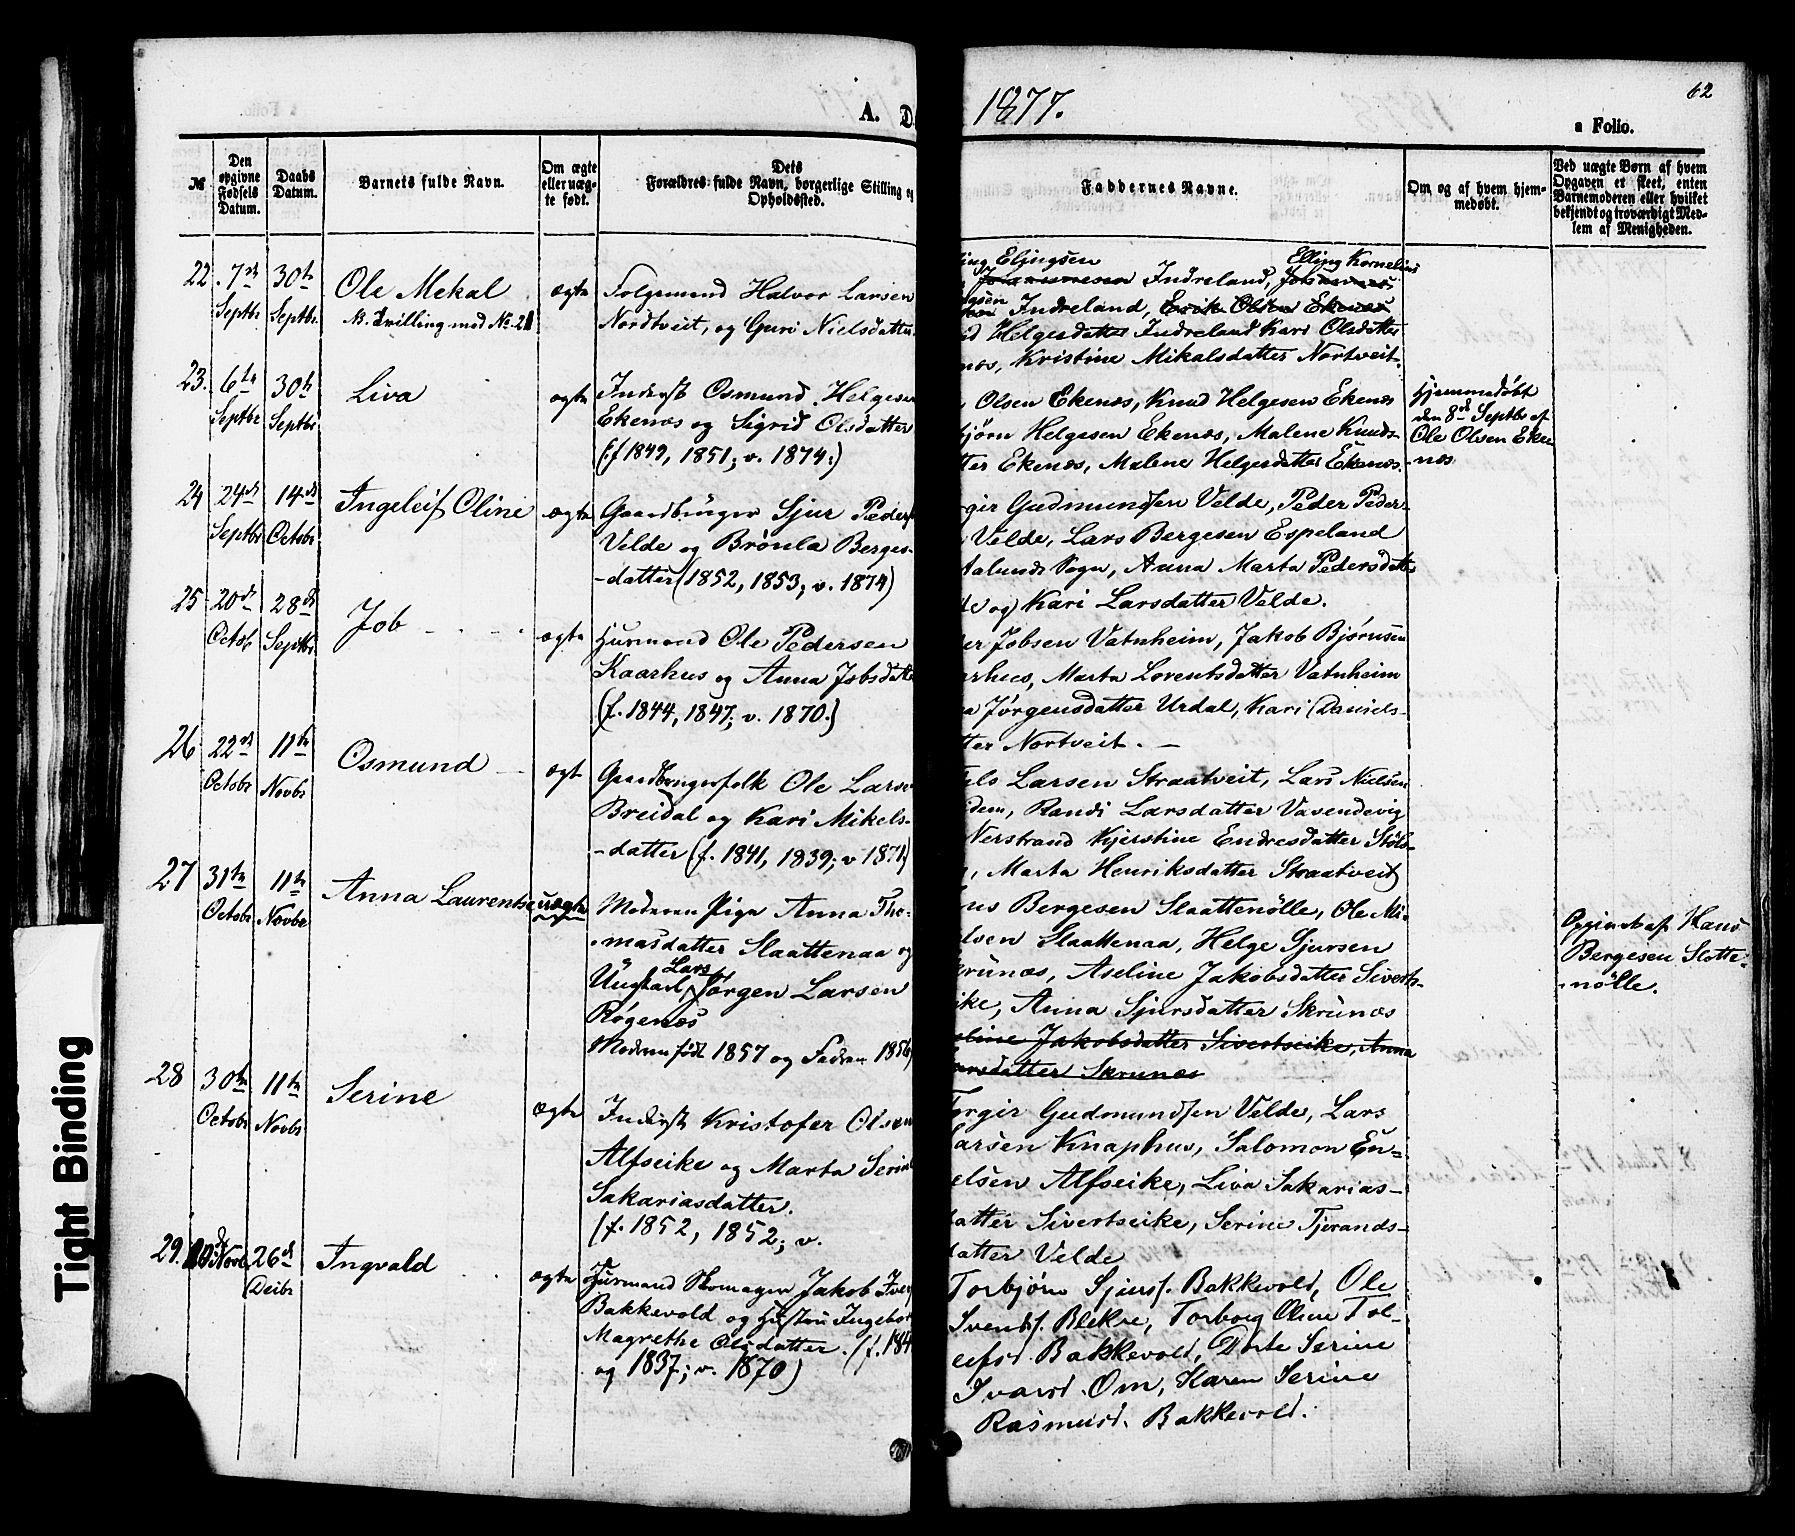 1877.
62
A. D
a Folio.
№
Den opgivne Fødsels Datum.
Daabs Datum.
Barnets fulde Navn.
Om ægte eller uægte født.
Dets Forældres fulde Navn, borgerlige Stilling og Opholdssted.
Faddernes Navne.
Om og af hvem hjemmedøbt.
Ved uægte Børn af hvem Opgaven er skeet, enten Barnemoderen eller hvilket bekjendt og troværdigt Medlem af Menigheden.
22. 7de Septbr 30te Septbr
Ole Mekal
NB. Tvilling med No. 21
ægte
Folgemand Halvor Larsen
Nordtveit, og Guri Nielsdatter
ling Elingsen Elling Kornelius
Johannesen Indreland, Johannes
gsen Indreland, Erik Olsen Ekenæs
Helgesdatter Indreland Kari Olsdatter
næs, Kristine Mikalsdatter Nortveit.
23. 6te Septbr 30te Septbr
Liva
ægte
Inderst Osmund Helgesen
Ekenæs og Sigrid Olsdatter
(f. 1849, 1851; v. 1874.)
Olsen Ekenæs, Knud Helgesen Ekenæs
bjørn Helgesen Ekenæs, Malene Knuds-
tter Ekenæs, Malene Helgesdatter Ekenæs.
hjemmedøbt
den 8de Septbr af
Ole Olsen Eke
-næs
24 24de Septbr 14de Octobr
Ingeleif Oline
ægte
Gaardbruger Sjur Peders
Velde og Brønla Berges-
-datter (1852, 1853; v. 1874)
rgir Gudmundsen Velde, Peder Peder-
Velde, Lars Bergesen Espeland
Sogn, Anna Marta Pedersdatter
og Kari Larsdatter Velde.
25 20de Octobr 28de Septbr
Job
ægte
Huusmand Ole Pedersen
Kaarhus og Anna Jobsdatter
(f. 1844, 1847; v. 1870.)
er Jobsen Vatnheim, Jakob Bjørnsen
arhus, Marta Lorentsdatter Vatnheim
a Jørgensdatter Urdal, Kari Daniels-
tter Nortveit. —
26 22de Octobr 11te Novbr
Osmund
ægte
Gaardbrugerfolk Ole Larsen
Breidal og Kari Mikels-
-datter (f. 1841, 1839; v 1871)
iels Larsen Straatveit, Lars Nielsen
idem, Randi Larsdatter Vasendevig
Nerstrand Kjerstine Endresdatter Støls-
, Marta Henriksdatter Straatveit
27 31te Octobr 11te Novbr
Anna Laurentse
uægte
Moderen Pige Anna Tho-
-masdatter Slaattenaa og
Lars
Ungkarl Jørgen Larsen
Røgenæs
Moderen født 1857 og Faderen 1856)
us Bergesen Slaattenølle, Ole Mi-
elsen Slaattenaa, Helge Sjursen
krunæs, Aseline Jakobsdatter Siverts-
eike, Anna Sjursdatter Skrunæs
eline Jakobsdatter Sivertseike, Anna
ursdatter Skrunæs
Opgivet af Hans
Bergesen Slotte-
-nølle.
28 30te Octobr 11te Novbr
Serine
ægte
Inderst Kristofer Olsen
Alfseike og Marta Serine
Sakariasdatter.
(f. 1852, 1852; v.
Torgir Gudmundsen Velde, Lars
Larsen Knaphus, Salomon En-
elsen Alfseike, Liva Sakarias-
datter Sivertseike, Serine Tjerands-
datter Velde
29. Novbr 26de Decbr
Ingvald
ægte
Huusmand Skomager Jakob Ivers
Bakkevold og Hustru Ingebor
Magrethe Olsdatter. (f. 184
og 1837; v. 1870)
Torbjørn Sjurs. Bakkevold, Ole
Svends. Blekre, Torborg Oline Tol-
lefsd. Bakkevold, Dorte Serine
Ivarsd. Øm, Karen Serine
Rasmusd. Bakkevold.
Tight Binding